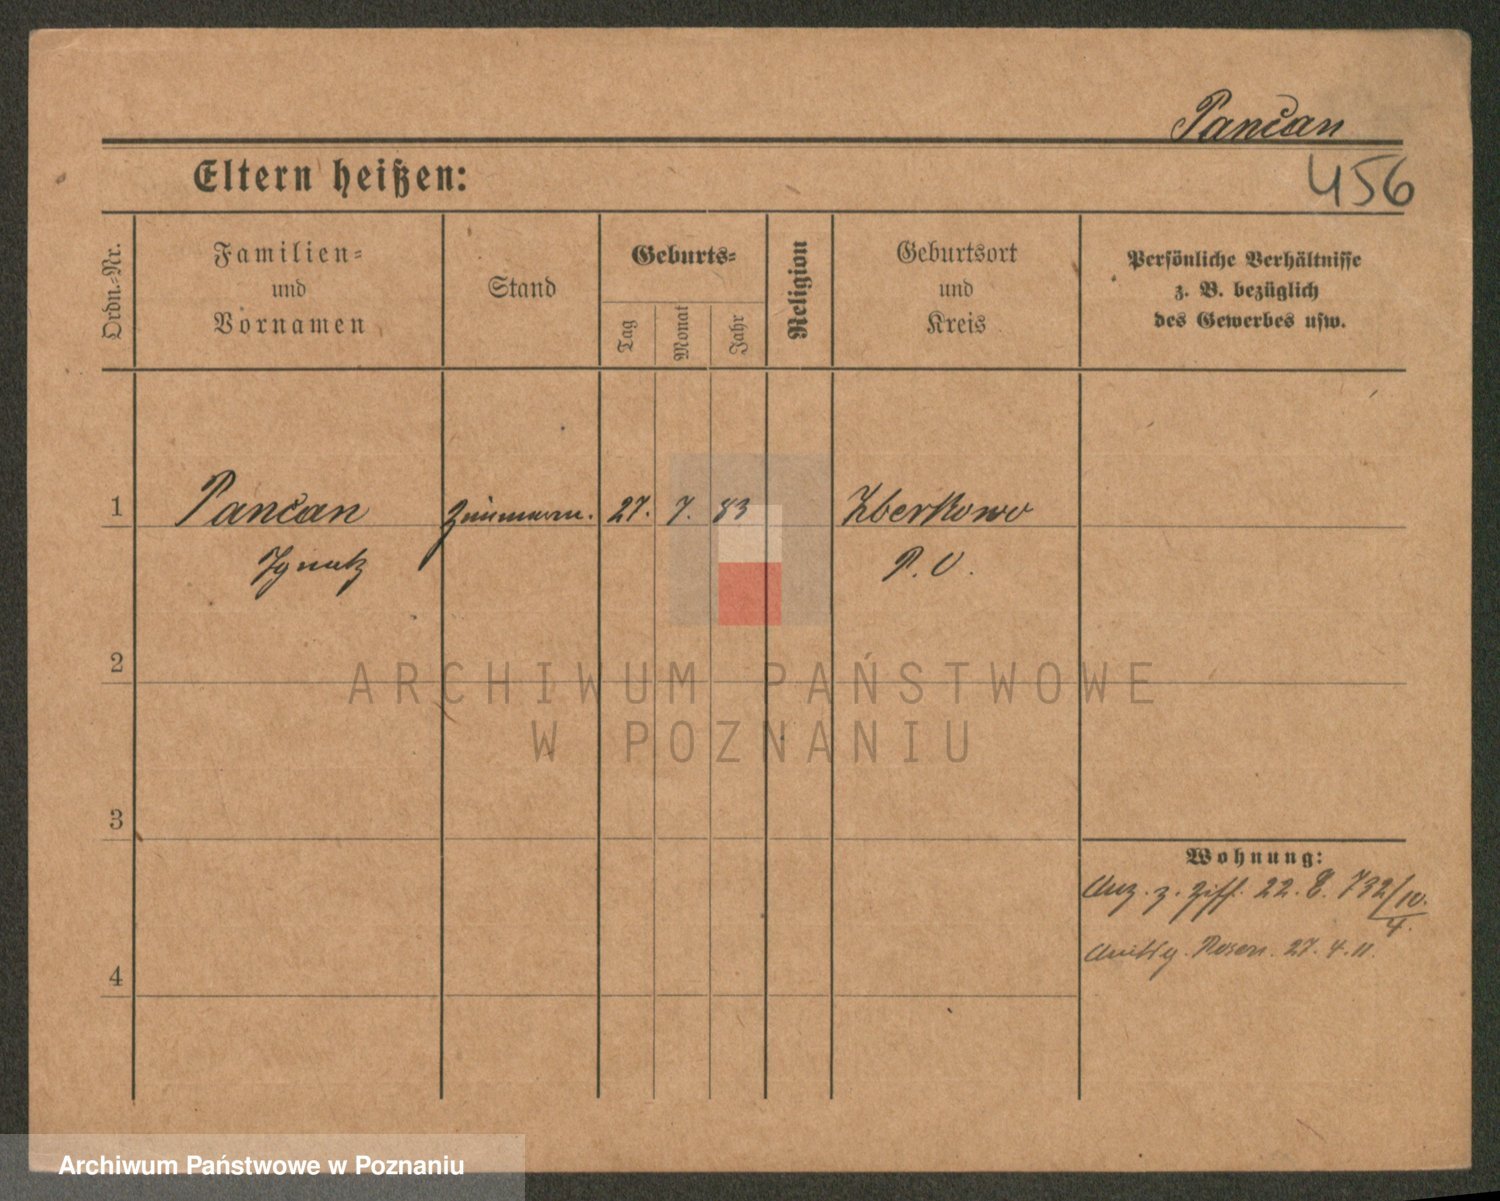 Pančan
456
Eltern heißen:
Ordn.-Nr.
Familien-
und
Vornamen
Stand
Geburts-
Tag
Monat
Jahr
Religion
Geburtsort
und
Kreis
Persönliche Verhältnisse
z. B. bezüglich
des Gewerbes usw.
1
Pančan
Zimmerm.
27.
7.
83
Zberkowo
Ignatz
P. O.
2
ARCHIWUM PAŃSTWOWE
W POZNANIU
3
Wohnung:
Anz. z. Ziff. 22. E. 732/10.
4.
Posen. 27. 4. 11.
4
Archiwum Państwowe w Poznaniu